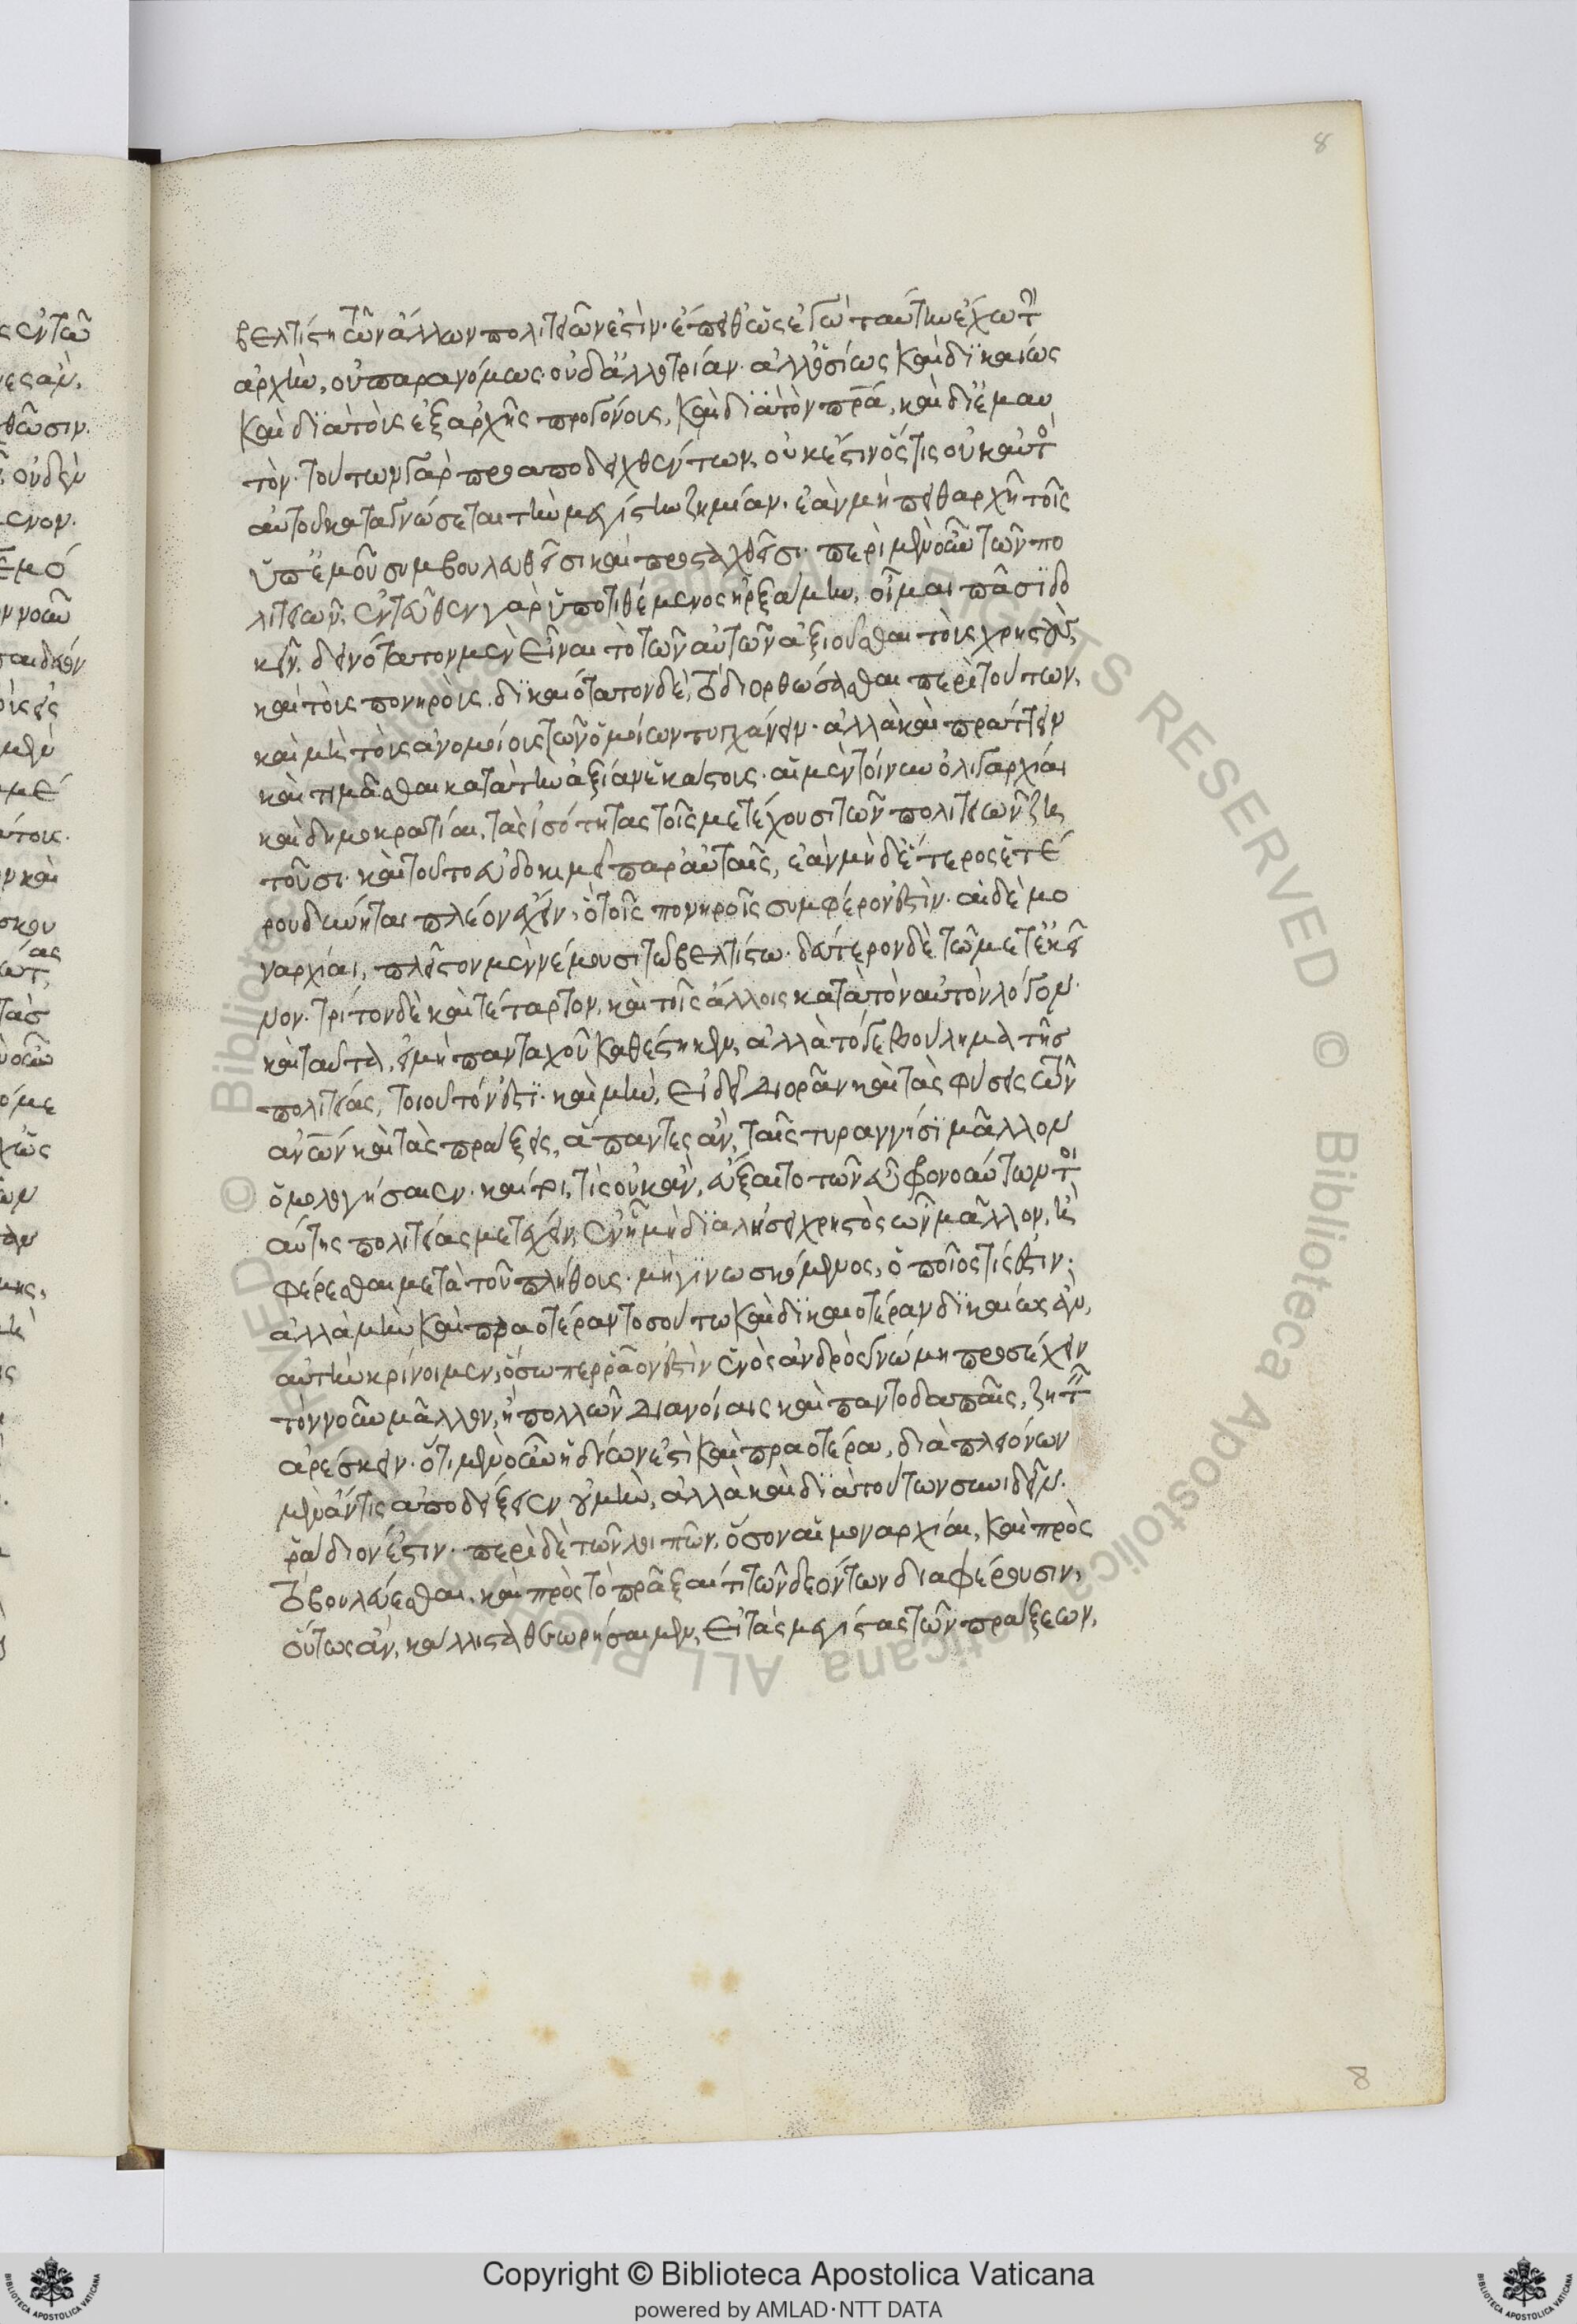 8
βελτίστη τῶν ἄλλων πολιτειῶν ἐστὶν· ἔπειθ' ὡς ἐγὼ ταύτην ἔχω τὴν
ἀρχὴν, οὐ παρανόμως· οὐδ' ἀλλοτρίαν· ἀλλ' ὁσίως καὶ δικαίως
καὶ διὰ τοὺς ἐξ ἀρχῆς προγόνους, καὶ διὰ τὸν πρα, καὶ δι' ἐμαυ
τόν· τούτων γὰρ προαποδειχθέντων, οὐκ ἔστιν ὅστις οὐκ αὐτὸ
αὑτοῦ καταγνώσεται τὴν μεγίστην ζημίαν· ἐὰν μὴ πειθαρχῆ τοῖς
ὑπ' ἐμοῦ συμβουλευθεῖσι καὶ προσταχθεῖσι· περὶ μὲν οὖν τῶν πο
λιτειῶν, ἐντεῦθεν γὰρ ὑποτιθέμενος ἠρξάμην, οἶμαι πᾶσι δο
κεῖν, δεινότατον μὲν εἶναι τὸ τῶν αὐτῶν ἀξιοῦσθαι τοὺς χρηστοὺς,
καὶ τοὺς πονηροὺς· δικαιότατον δὲ, τὸ διορθώσασθαι περὶ τούτων,
καὶ μὴ τοὺς ἀνομοίους τῶν ὁμοίων τυγχάνειν· ἀλλὰ καὶ πράττειν
καὶ τιμᾶσθαι κατὰ τὴν ἀξίαν ἑκάστους· αἱ μὲν τοίνυν ὀλιγαρχίαι
καὶ δημοκρατίαι, τὰς ἰσότητας τοῖς μετέχουσι τῶν πολιτειῶν ζη
τοῦσι· καὶ τοῦτο εὐδοκιμεῖ παρ' αὐταῖς, ἐὰν μὴ δὲ ἕτερος ἑτέ
ρου δύνηται πλέον ἔχειν· ὃ τοῖς πονηροῖς συμφέρον ἐστὶν· αἱ δὲ μο
ναρχίαι, πλεῖστον μὲν νέμουσι τῷ βελτίστῳ· δεύτερον δὲ τῷ μετ' ἐκεῖ
νον· τρίτον δὲ καὶ τέταρτον, καὶ τοῖς ἄλλοις κατὰ τὸν αὐτὸν λόγον·
καὶ ταῦτα, εἰ μὴ πανταχοῦ καθέστηκεν, ἀλλὰ τό γε βούλημα τῆς
πολιτείας, τοιοῦτόν ἐστι· καὶ μὴν, εἰ δεῖ διορᾶν καὶ τὰς φύσεις τῶν
ανων καὶ τὰς πράξεις, ἅπαντες ἂν, ταῖς τυραννίσι μᾶλλον
ὁμολογήσαιεν· καίτοι, τίς οὐκ ἂν, εὔξαιτο τῶν εὖ φρονούντων τοι
αύτης πολιτείας μετέχειν, ἐν ᾗ μὴ διαλήσει χρηστὸς ὢν μᾶλλον, ἢ
φέρεσθαι μετὰ τοῦ πλήθους· μὴ γινωσκόμενος, ὁποῖός τίς ἐστιν;
ἀλλὰ μὴν καὶ πραοτέραν τοσούτω καὶ δικαιοτέραν δικαίως ἂν,
αὐτὴν κρίνοιμεν, ὅσωπερ ῥᾷον ἐστὶν ἑνὸς ἀνδρὸς γνώμη προσέχειν
τὸν νοῦν μᾶλλον, ἢ πολλῶν διανοίαις καὶ παντοδαπαῖς, ζητεῖν
ἀρέσκειν· ὅτι μὲν οὖν ἡδίων ἐστὶ καὶ πραοτέρα, διὰ πλειόνων
μὲν ἄν τις ἀποδείξειεν ὑμῖν, ἀλλὰ καὶ διὰ τούτων συνιδεῖν·
ῥάδιον ἐστιν· περὶ δὲ τῶν λοιπῶν, ὅσον αἱ μοναρχίαι, καὶ πρὸς
τὸ βουλεύεσθαι, καὶ πρὸς τὸ πρᾶξαί τι τῶν δεόντων διαφέρουσιν,
οὕτως ἂν, κάλλιστα θεωρήσαιμεν, εἰ τὰς μεγίστας τῶν πράξεων,
8
© Biblioteca Apostolica Vaticana ALL RIGHTS RESERVED
Copyright © Biblioteca Apostolica Vaticana
powered by AMLAD·NTT DATA